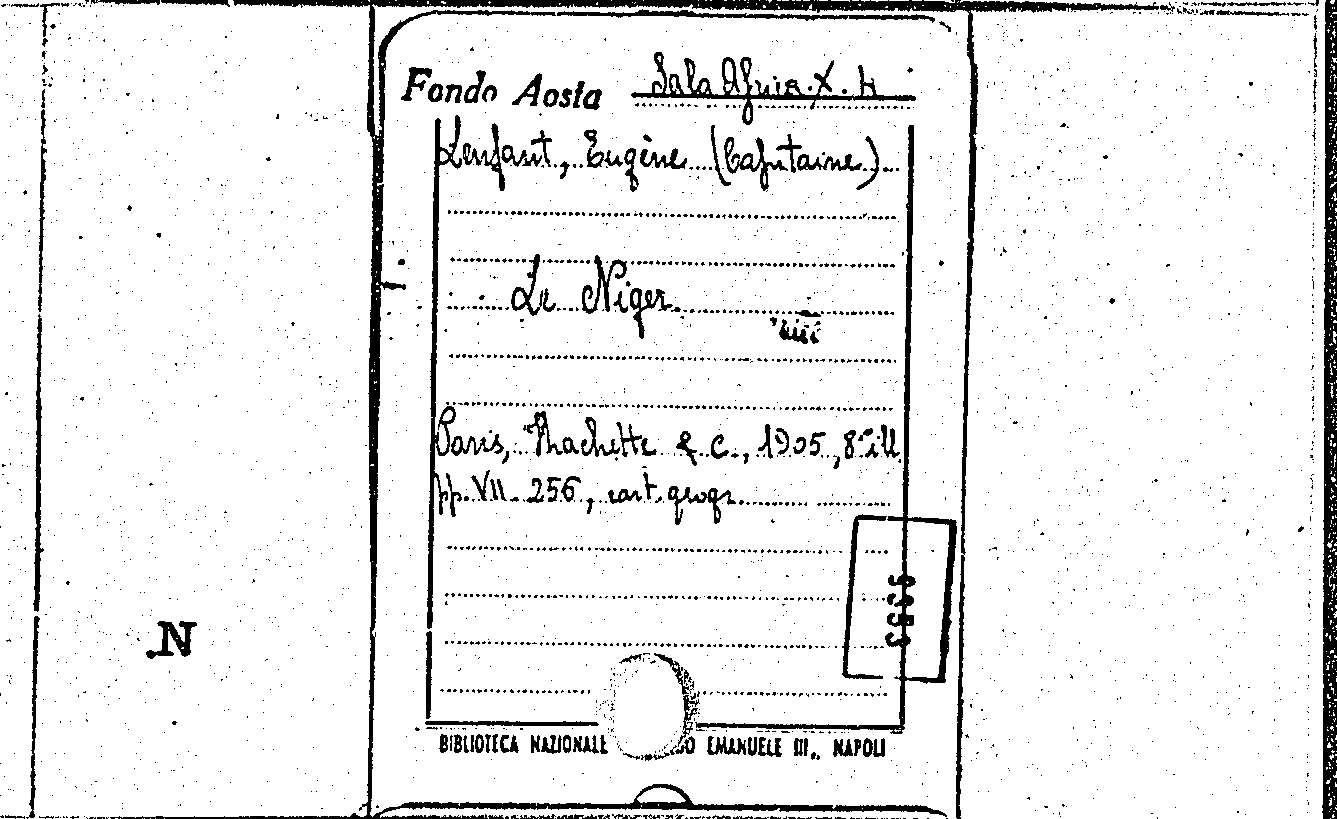 Fondo Aosta Sala Africa. X. H
Lenfant, Eugène (Capitaine)
Le Niger
Paris, Hachette & C., 1905, 8° ill.
pp. VII-256, cart. geogr.
9353
N.
BIBLIOTECA NAZIONALE EMANUELE III„ NAPOLI